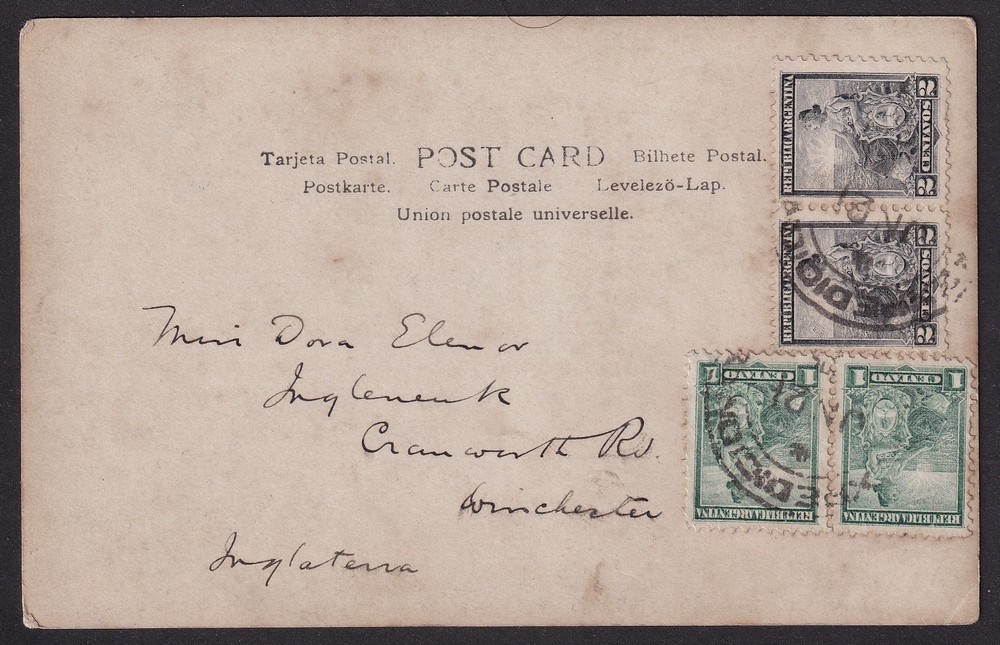 Tarjeta Postal. POST CARD Bilhete Postal.
Postkarte. Carte Postale Levelező-Lap.
Union postale universelle.
Miss Dora Elenor
Ingleneuk
Cranworth Rd.
Winchester
Inglaterra
REPUBLICA ARGENTINA
2 CENTAVOS 2
REPUBLICA ARGENTINA
2 CENTAVOS 2
1 CENTAVO 1
REPUBLICA ARGENTINA
1 CENTAVO 1
REPUBLICA ARGENTINA